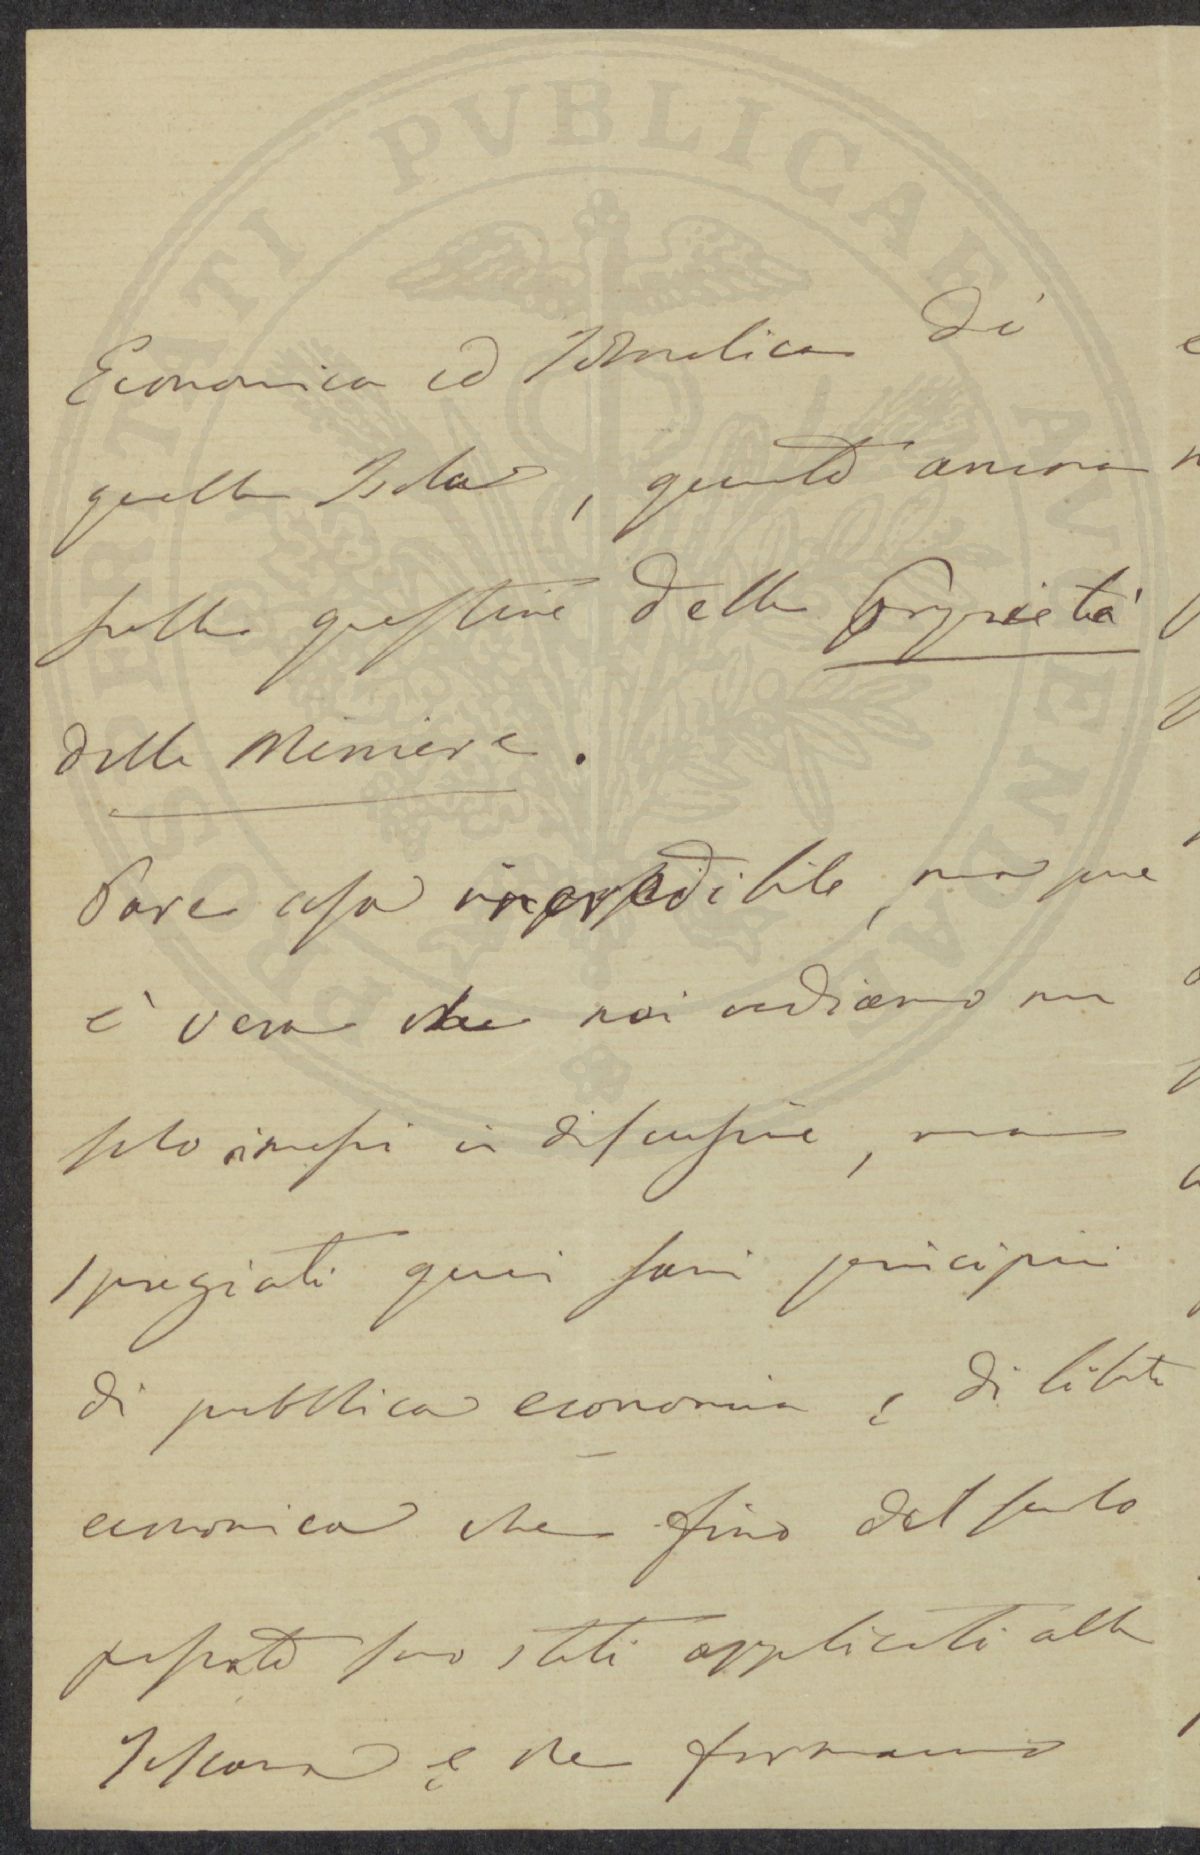 Economica ed Idraulica di
quella Isola, quanto ancora
sulla questione della Proprietà
delle Miniere.
Pare cosa incredibile, ma pure
è vero che noi vediamo non
solo messi in discussione, ma
spregiati quei sani principii
di pubblica economia e di libertà
economica che fino dal secolo
passato sono stati applicati alla
Toscana e che formano